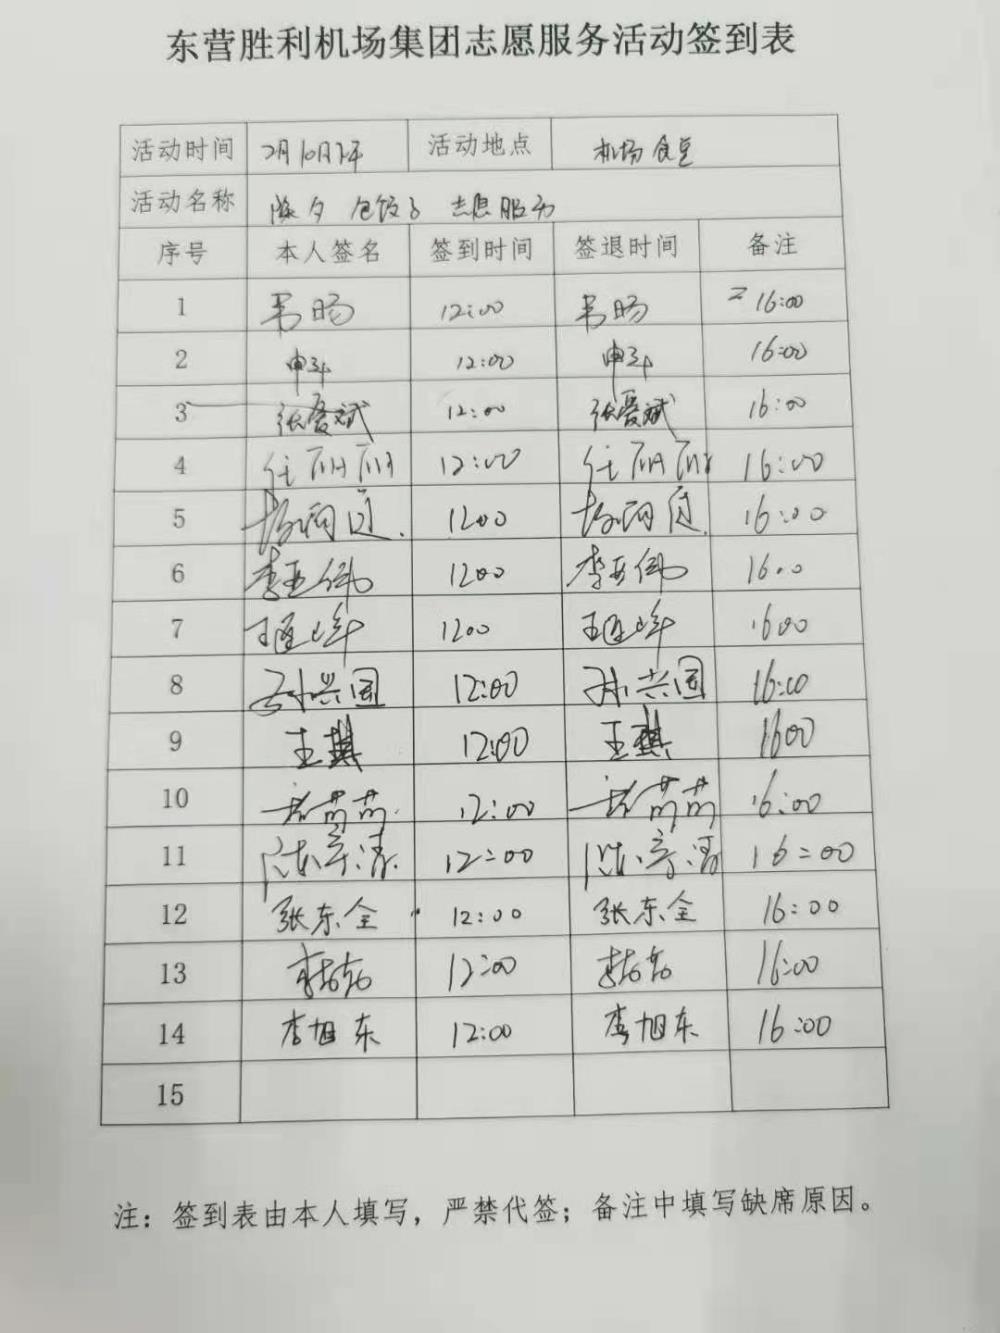 东营胜利机场集团志愿服务活动签到表
活动时间 2月10日下午 活动地点 机场食堂
活动名称 除夕包饺子志愿服务
序号 本人签名 签到时间 签退时间 备注
1 韦旸 12:00 韦旸 16:00
2 申斗 12:00 申斗 16:00
3 张爱斌 12:00 张爱斌 16:00
4 任丽丽 12:00 任丽丽 16:00
5 1200 16:00
6 李亚伟 1200 李亚伟 16:00
7 1200 1600
8 孙兴国 12:00 孙兴国 16:00
9 王琪 12:00 王琪 1600
10 12:00 16:00
11 12:00 16:00
12 张东全 12:00 张东全 16:00
13 12:00 16:00
14 李旭东 12:00 李旭东 16:00
15
注：签到表由本人填写，严禁代签；备注中填写缺席原因。